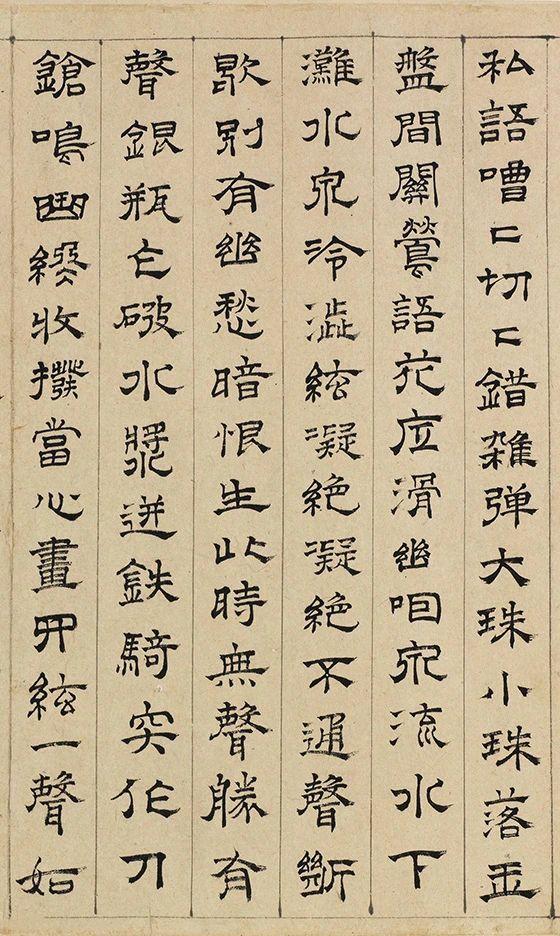 私語嘈〻切〻錯雜弹大珠小珠落玉
盤間關鶯語花底滑幽咽泉流水下
灘水泉冷澁絃凝絶凝絶不通聲斷
歇别有幽愁暗恨生此時無聲勝有
聲銀瓶乍破水漿迸鉄騎突作刀
鎗鳴曲終收撥當心畫四絃一聲如